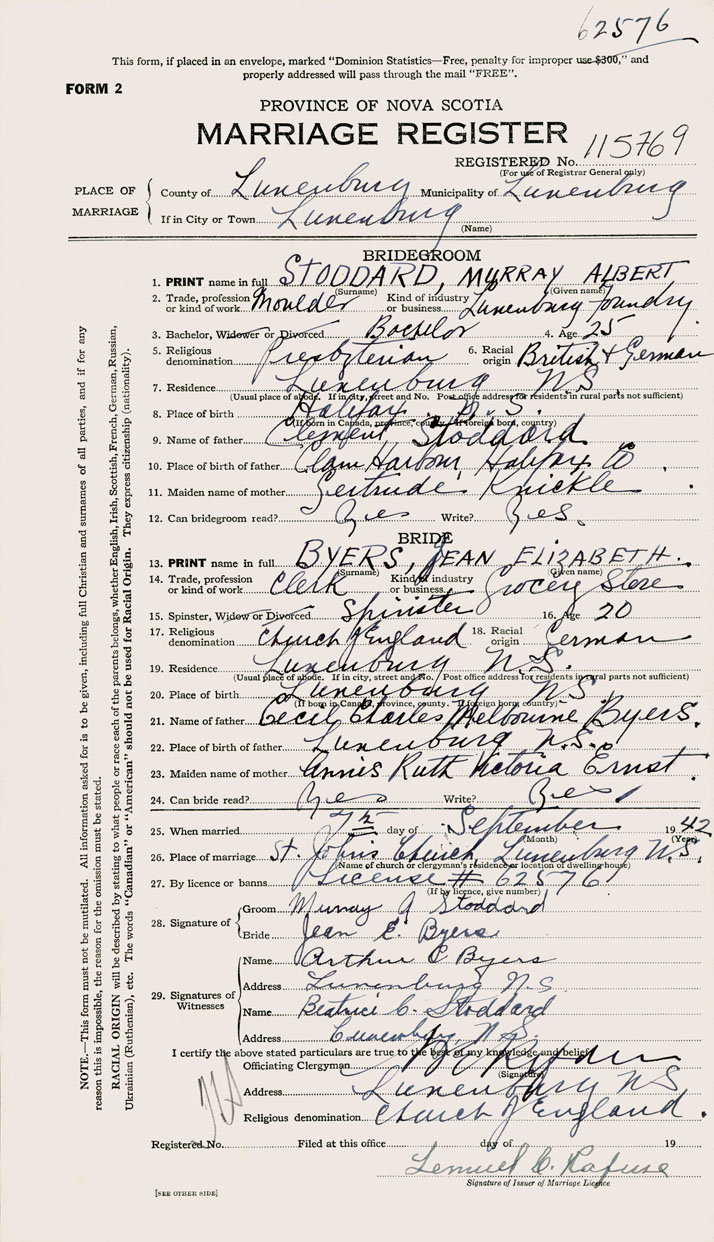 62576
This form, if placed in an envelope, marked "Dominion Statistics—Free, penalty for improper use $300," and
properly addressed will pass through the mail "FREE".
FORM 2
PROVINCE OF NOVA SCOTIA
MARRIAGE REGISTER
REGISTERED No. 115769
(For use of Registrar General only)
PLACE OF MARRIAGE
County of Lunenburg Municipality of Lunenburg
If in City or Town Lunenburg
(Name)
BRIDEGROOM
1. PRINT name in full STODDARD, MURRAY ALBERT
(Surname) (Given name)
2. Trade, profession or kind of work Moulder Kind of industry or business Lunenburg Foundry
3. Bachelor, Widower or Divorced Bachelor 4. Age 25
5. Religious denomination Presbyterian 6. Racial origin British & German
7. Residence Lunenburg N.S.
(Usual place of abode. If in city, street and No. Post office address for residents in rural parts not sufficient)
8. Place of birth Halifax N.S.
(If born in Canada, province, county. If foreign born, country)
9. Name of father Clement Stoddard
10. Place of birth of father Clam Harbour, Halifax Co
11. Maiden name of mother Gertrude Knickle
12. Can bridegroom read? Yes Write? Yes.
BRIDE
13. PRINT name in full BYERS, JEAN ELIZABETH.
(Surname) (Given name)
14. Trade, profession or kind of work Clerk Kind of industry or business Grocery Store
15. Spinster, Widow or Divorced Spinster 16. Age 20
17. Religious denomination Church of England 18. Racial origin German
19. Residence Lunenburg N.S.
(Usual place of abode. If in city, street and No. Post office address for residents in rural parts not sufficient)
20. Place of birth Lunenburg N.S.
(If born in Canada, province, county. If foreign born, country)
21. Name of father Cecil Charles Melbourne Byers.
22. Place of birth of father Lunenburg N.S.
23. Maiden name of mother Annis Ruth Victoria Ernst.
24. Can bride read? Yes Write? Yes
25. When married 7th day of September 1942
(Month) (Year)
26. Place of marriage St. Johns Church, Lunenburg N.S.
(Name of church or clergyman's residence or location of dwelling house)
27. By licence or banns License # 62576
(If by licence, give number)
28. Signature of
Groom Murray A Stoddard
Bride Jean E. Byers
29. Signatures of Witnesses
Name Arthur C Byers
Address Lunenburg N.S.
Name Beatrice C. Stoddard
Address Lunenburg, N.S.
I certify the above stated particulars are true to the best of my knowledge and belief.
Officiating Clergyman
(Signature)
Address Lunenburg N.S.
Religious denomination Church of England.
Registered No. Filed at this office day of 19
Lemuel C. Rafuse
Signature of Issuer of Marriage Licence
[SEE OTHER SIDE]
NOTE.—This form must not be mutilated. All information asked for is to be given, including full Christian and surnames of all parties, and if for any
reason this is impossible, the reason for the omission must be stated.
RACIAL ORIGIN will be described by stating to what people or race each of the parents belongs, whether English, Irish, Scottish, French, German, Russian,
Ukrainian (Ruthenian), etc. The words "Canadian" or "American" should not be used for Racial Origin. They express citizenship (nationality).